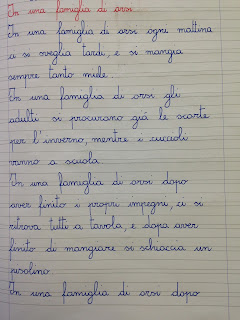 In una famiglia di orsi
In una famiglia di orsi ogni mattina
ci si sveglia tardi, e si mangia
sempre tanto miele.
In una famiglia di orsi gli
adulti si procurano già le scorte
per l'inverno, mentre i cuccioli
vanno a scuola.
In una famiglia di orsi dopo
aver finito i propri impegni, ci si
ritrova tutti a tavola, e dopo aver
finito di mangiare si schiaccia un
pisolino.
In una famiglia di orsi dopo